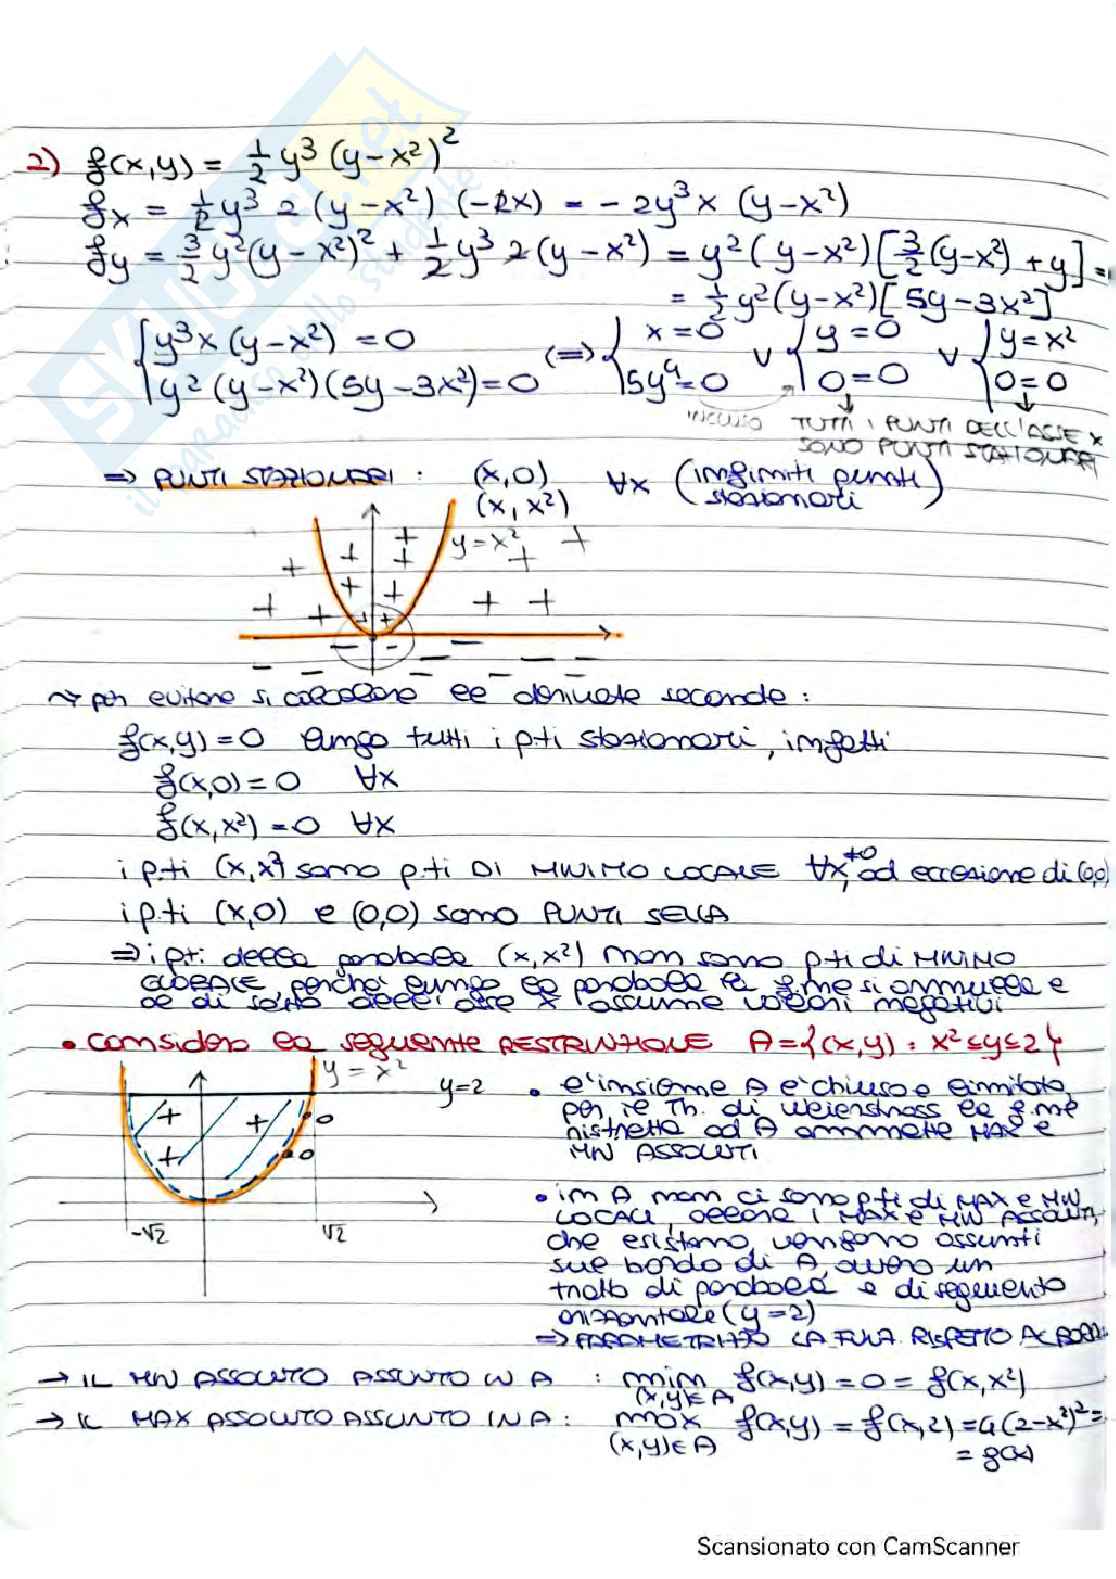 2) f(x,y) = 1/2 y³ (y-x²)²
fx = 1/2 y³ 2 (y-x²) (-2x) = - 2y³ x (y-x²)
fy = 3/2 y² (y-x²)² + 1/2 y³ 2 (y-x²) = y² (y-x²) [3/2 (y-x²) + y] =
= 1/2 y² (y-x²) [5y-3x²]
{ y³x (y-x²) = 0 <=> { x=0 ∨ { y=0 ∨ { y=x²
{ y² (y-x²) (5y-3x²) = 0 { 5y⁴=0 { 0=0 { 0=0
INCLUSO TUTTI I PUNTI DELL'ASSE X
SONO PUNTI STAZIONARI
=> PUNTI STAZIONARI : (x,0) ∀x (infiniti punti
(x,x²) stazionari)
y=x²
+ + + + + + + + + + + + + +
- - - - - - - -
per evitare di calcolare le derivate seconde :
f(x,y)=0 lungo tutti i pti stazionari, infatti
f(x,0)=0 ∀x
f(x,x²)=0 ∀x
i pti (x,x²) sono pti DI MINIMO LOCALE ∀x≠0, ad eccezione di (0,0)
i pti (x,0) e (0,0) sono PUNTI SELLA
=> i pti della parabola (x,x²) non sono pti di MINIMO
GLOBALE, perché lungo la parabola la f.ne si annulla e
al di sotto dell'asse x assume valori negativi
• considero la seguente RESTRIZIONE A={(x,y) : x²≤y≤2}
y=x²
y=2
+ + +
0
0
-√2 √2
• l'insieme A è chiuso e limitato,
per il Th. di Weierstrass la f.ne
ristretta ad A ammette MAX e
MIN ASSOLUTI
• in A non ci sono pti di MAX e MIN
LOCALI, allora i MAX e MIN ASSOLUTI,
che esistono, vengono assunti
sul bordo di A, ovvero un
tratto di parabola e di segmento
orizzontale (y=2)
=> PARAMETRIZZO LA FUNZ. RISPETTO AL BORDO
→ IL MIN ASSOLUTO ASSUNTO IN A : min f(x,y) = 0 = f(x,x²)
(x,y)∈A
→ IL MAX ASSOLUTO ASSUNTO IN A : max f(x,y) = f(x,2) = 4(2-x²)² =
(x,y)∈A = g(x)
Scansionato con CamScanner